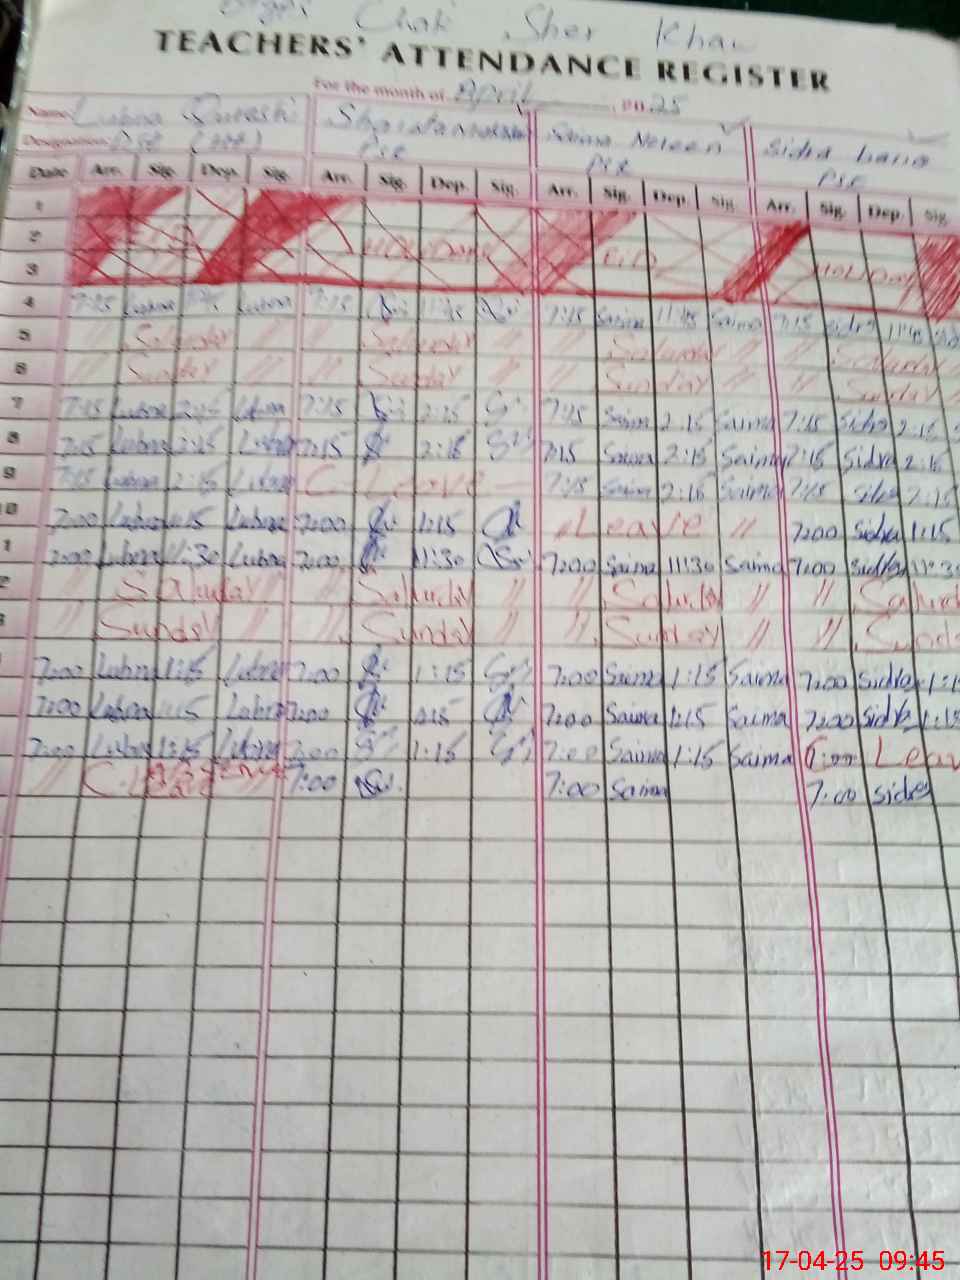 Chak Sher Khan
TEACHERS' ATTENDANCE REGISTER
For the month of April 2025
Name: Lubna Qureshi Saima Noreen Sidra
Designation: PSE PSE
Date Arr. Sig. Dep. Sig. Arr. Sig. Dep. Sig. Arr. Sig. Dep. Sig. Arr. Sig. Dep. Sig.
1
2 HOLIDAY
3 EID HOLIDAY
4 7:15 Lubna Lubna 7:15 7:15 Saima 11:45 Saima 7:15 Sidra
5 // Saturday // // Saturday // // Saturday // // Saturday
6 // Sunday // // Sunday // // Sunday // // Sunday
7 7:15 Lubna 2:15 Lubna 7:15 2:15 7:15 Saima 2:15 Saima 7:15 Sidra 2:15
8 7:15 Lubna 2:15 Lubna 7:15 2:15 7:15 Saima 2:15 Saima 7:15 Sidra 2:15
9 7:15 Lubna 2:15 Lubna C. Leave 7:15 Saima 2:15 Saima 7:15 Sidra 2:15
0 7:00 Lubna 1:15 Lubna 7:00 1:15 Leave // 7:00 Sidra 1:15
1 7:00 Lubna 11:30 Lubna 7:00 11:30 7:00 Saima 11:30 Saima 7:00 Sidra 11:30
2 // Saturday // // Saturday // // Saturday // // Saturd
3 // Sunday // // Sunday // // Sunday // // Sund
7:00 Lubna 1:15 Lubna 7:00 1:15 7:00 Saima 1:15 Saima 7:00 Sidra 1:1
7:00 Lubna 1:15 Lubna 7:00 7:00 Saima 1:15 Saima 7:00 Sidra 1:15
7:00 Lubna 1:15 Lubna 7:00 1:15 7:00 Saima 1:15 Saima Leav
// 7:00 7:00 Saima 7:00 Sidra
17-04-25 09:45